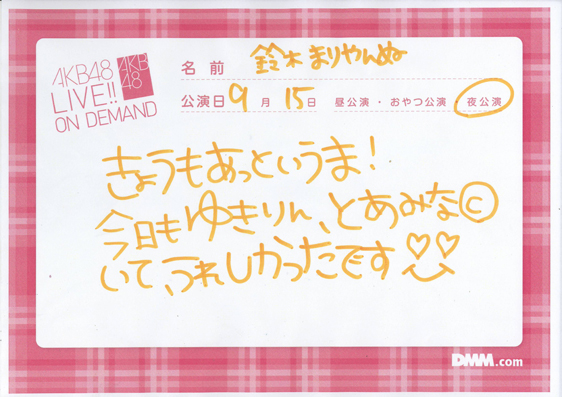 AKB48
LIVE!!
ON DEMAND
AKB
48
名前 鈴木まりやんぬ
公演日 9月 15日 昼公演・おやつ公演・夜公演
きょうもあっというま!
今日もゆきりん、とあみなⓒ
いて、うれしかったです
DMM.com